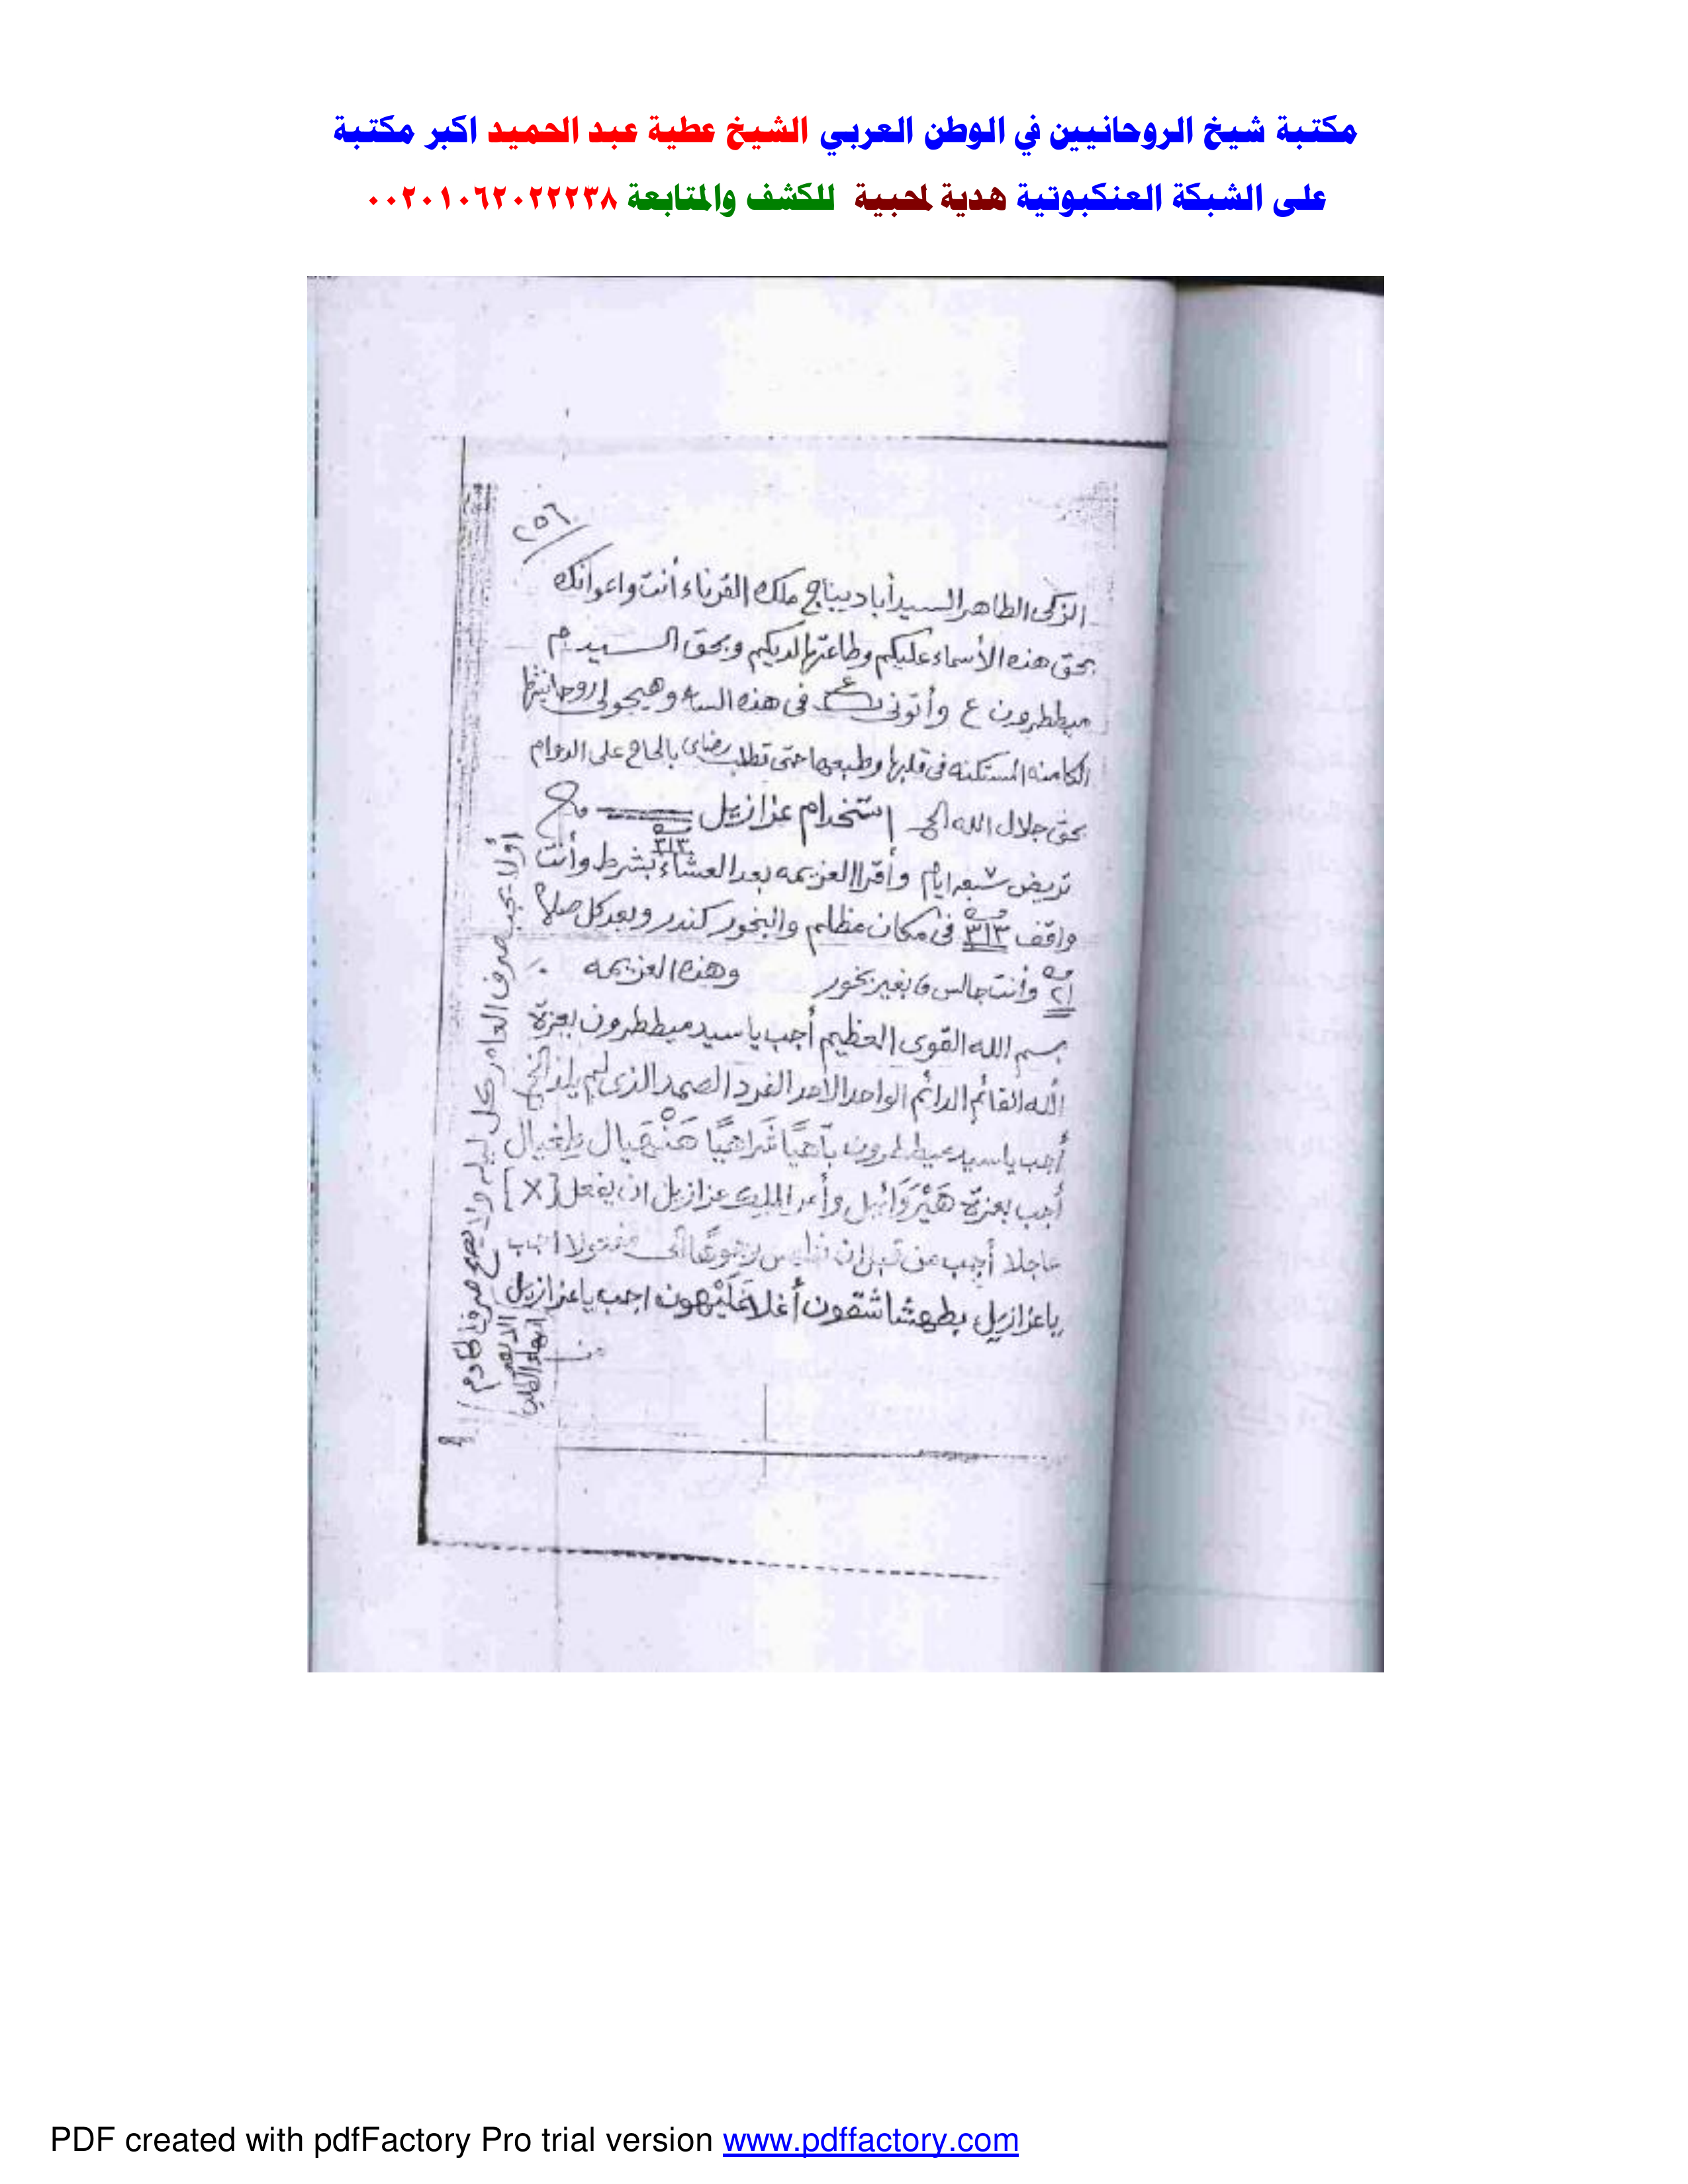 مكتبة شيخ الروحانيين في الوطن العربي الشيخ عطية عبد الحميد اكبر مكتبة
على الشبكة العنكبوتية هدية لمحبية للكشف والمتابعة ٠٠٢٠١٠٦٢٠٢٢٢٣٨
٢٥٦
الزكى الطاهر السيد أباديباج ملك القرناء أنت واعوانك
بحق هذه الأسماء عليكم وطاعتها لديكم وبحق السيد م
ميططرون ع وأتونى فى هذه الساعه وهيجو لى روحانيتها
الكامنه المستكنه فى قلبها وطبعها حتى تطلب رضاى بالحاح على الدوام
بحق جلال الله الخ استخدام عزازيل
تريض سبعه ايام وأقرا العزيمه بعد العشاء بشرط وأنت
٣١٣ مره
واقف ٣١٣ مره فى مكان مظلم والبخور كندر وبعد كل صلاة
٢١ مره وأنت جالس بغير بخور وهذه العزيمه
بسم الله القوى العظيم أجب يا سيد ميططرون بعزة
الله القائم الدائم الواحد الأحد الفرد الصمد الذى لم يلد الخ
أجب يا سيد ميططرون بآهيًا شراهيًا هَنْهَيال طغيال
أجب بعزة هَيْرَوَائيل وأمر الملك عزازيل ان يفعل [X]
عاجلا أجب من قبل ان اجب
يا عزازيل بطهشا شقون أجب يا عزازيل
أولا يجب صرف العامر كل ليله ولا يصح صرف الخادم
الا بعد
انهاء الطلب
PDF created with pdfFactory Pro trial version www.pdffactory.com